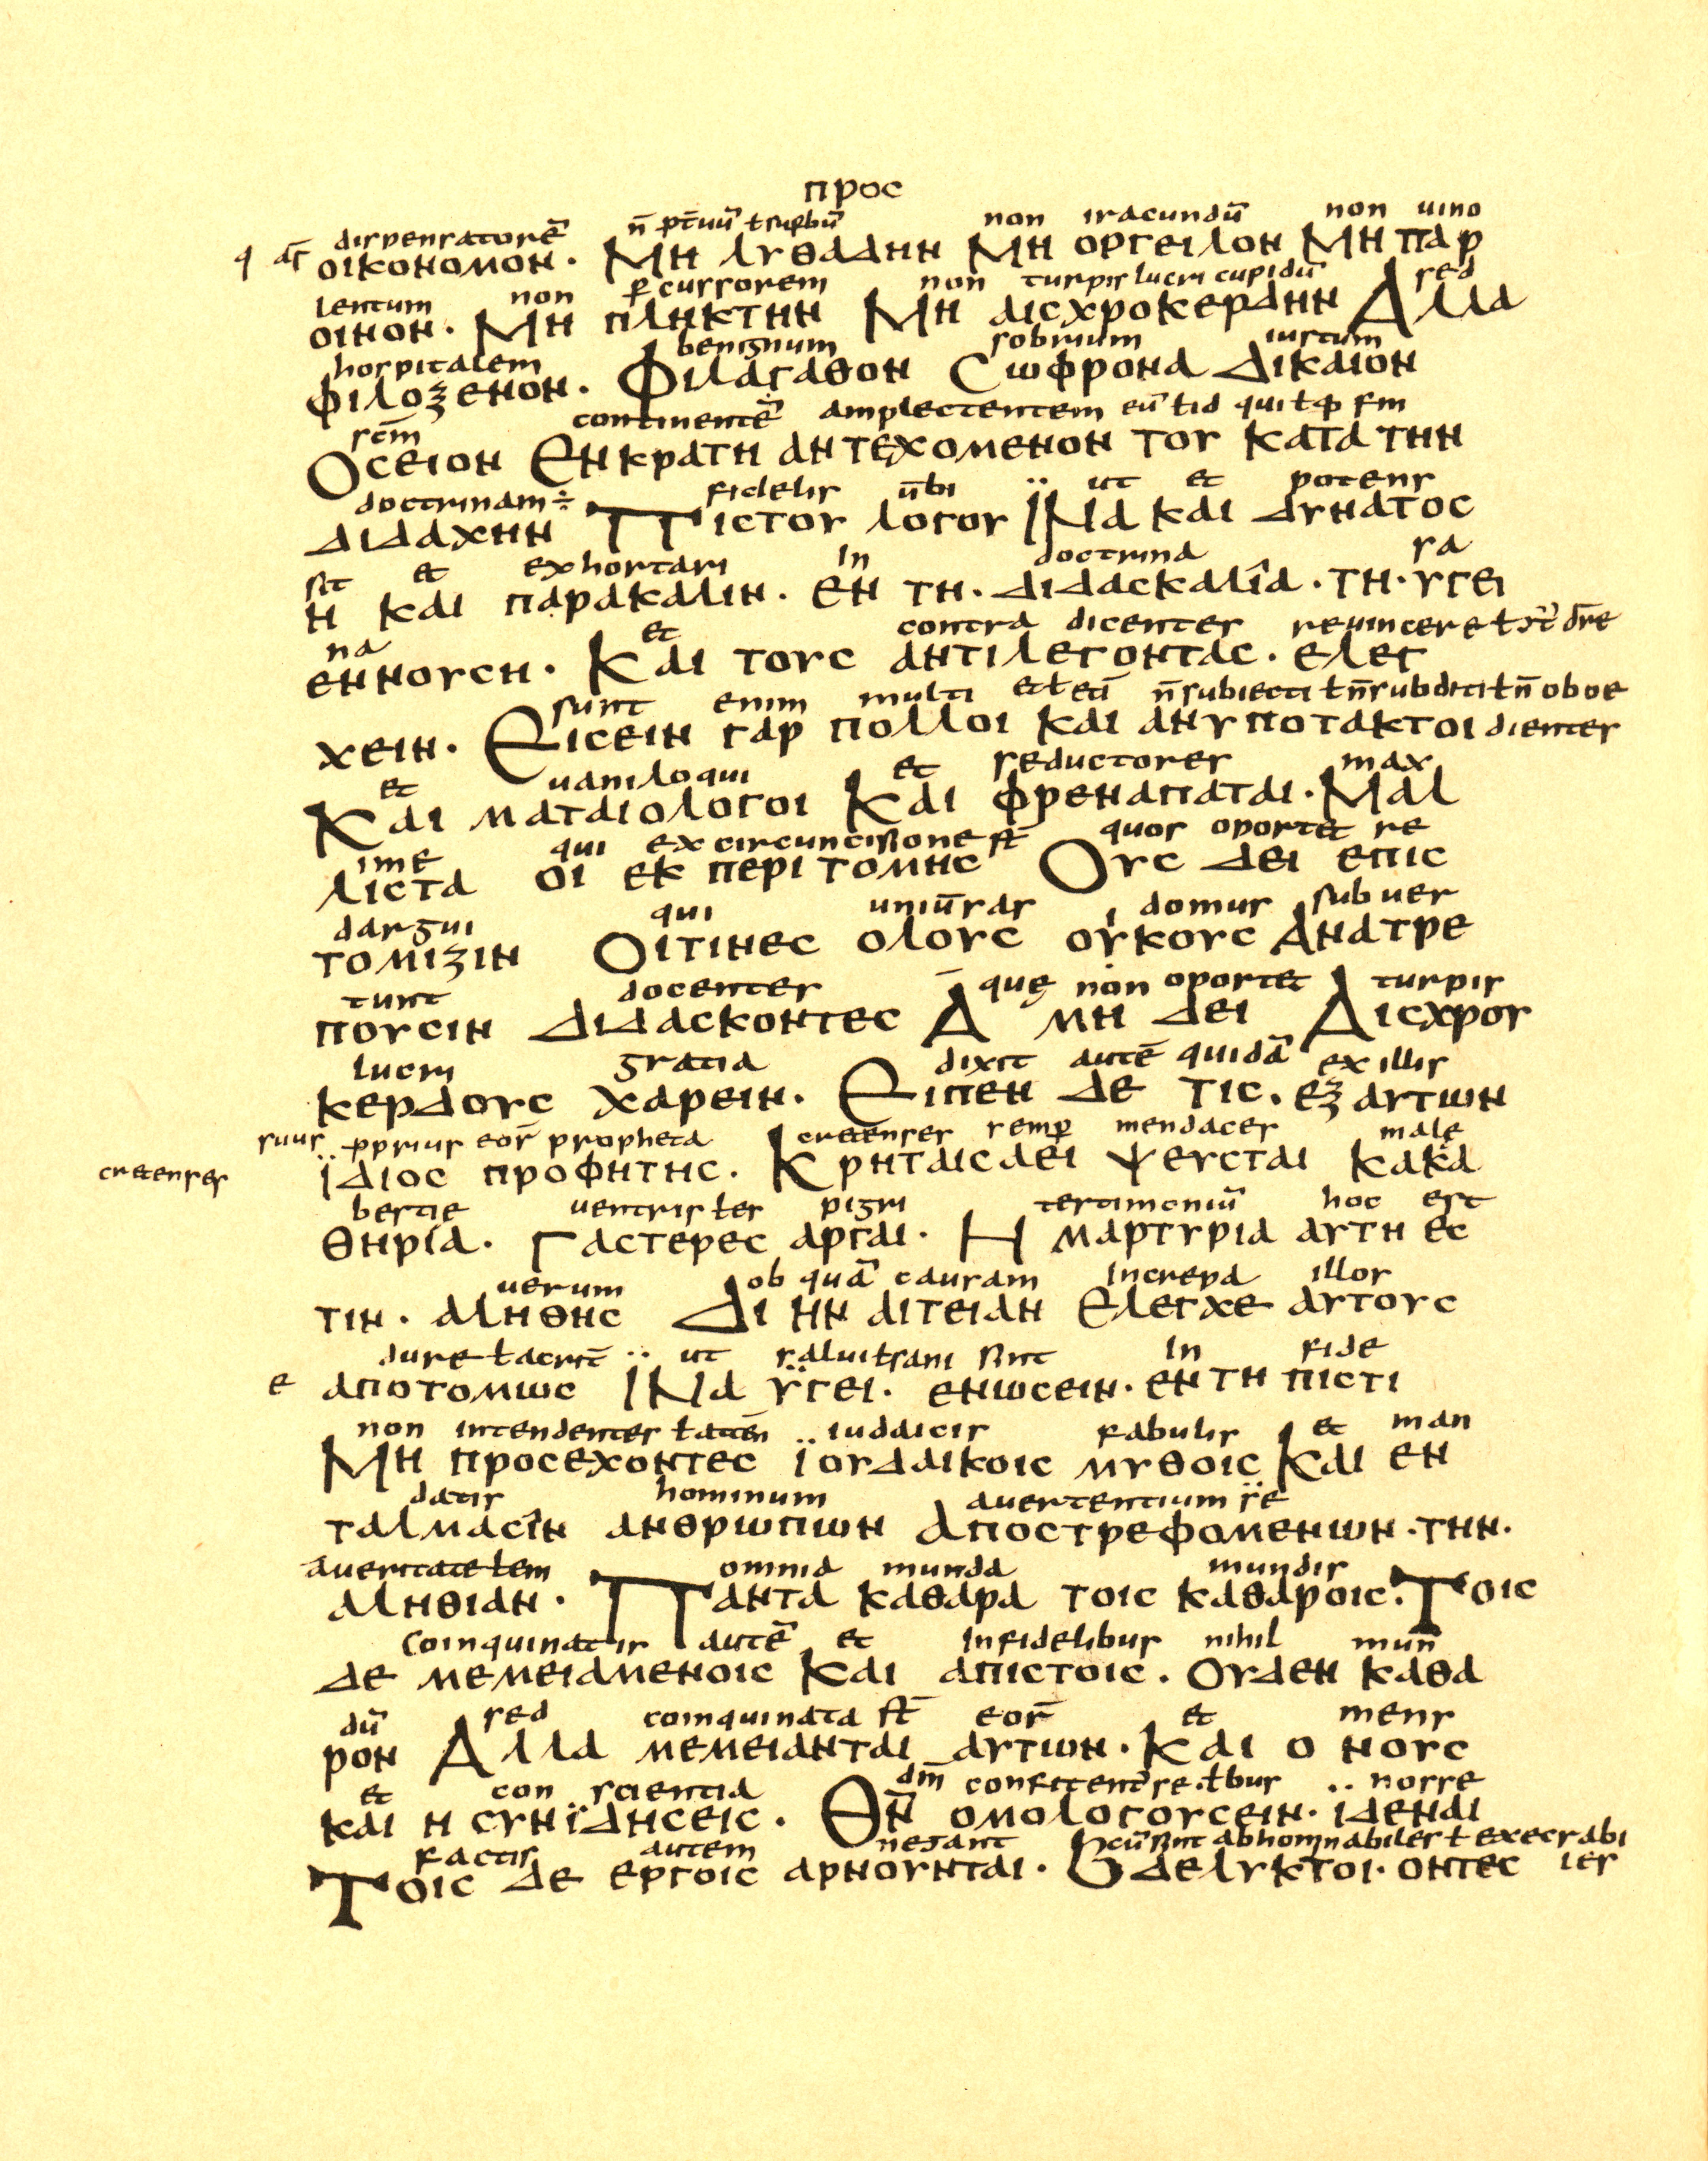 προς
dispensatorē n̄ ꝓt̄uū ł suꝑbū non iracundū non uino
οικονομον· Μη λυθαδην Μη οργειλον Μη παρ
lentum non ꝑcussorem non turpis lucri cupidū sed
οινον· Μη πληκτην Μη αισχροκερδην Αλλα
hospitalem benignum sobrium iustum
φιλοξενον· Φιλαγαθον Σωφρονα Δικαιον
sc̄m continentē amplectentem eū ł id qui ł ꝙ sm
Οσειον Ενκρατη αντεχομενον του κατα την
doctrinam ÷ fidelis ūbi ·· ut et potens
διδαχην Πιστου λογου Ινα και δυνατος
sit et exhortari in doctrina sa
η και παρακαλιν· εν τη· διδασκαλια· τη· υγει
na et contra dicentes reuincere ł
εννουση· Και τους αντιλεγοντας· ελεγ
sunt enim multi et ł etī n̄ subiecti ł n̄ subditi ł n̄ oboe
χειν· Εισειν γαρ πολλοι και ανυποτακτοι dientes
et uaniloqui et seductores max
Και ματαιολογοι Και φρεναπαται· Μαλ
ime qui ex circuncisione st̄ quos oportet re
λιστα οι εκ περιτομης Ους δει επισ
dargui qui uniūsas domus subuer
τομιζιν Οιτινες ολους οικους Ανατρε
tunt docentes quę non oportet turpis
πουσιν διδασκοντες Α μη δει Αισχρου
lucri gratia dixit autē quidā ex illis
κερδους χαρειν· Ειπεν δε τις· εξ αυτων
suus ·· ꝓprius eor̄ propheta cretenses semꝑ mendaces malę
cretenses ϊδιος προφητης· Κρηταισαει ψευσται κακα
bestie uentris ł es pigri testimoniū hoc est
θηρια· Γαστερες αργαι· Η μαρτυρια αυτη εσ
uerum ob quā causam increpa illos
τιν· αληθης Δι ην αιτειαν Ελεγχε αυτους
dure ł acrit̄ ·· ut salui ł sani sint in fide
ε αποτομως Ινα υγει· ενωσειν· εν τη πιστι
non intendentes ł attēn ·· iudaicis fabulis et man
Μη προσεχοντες ιουδαικοις μυθοις Και εν
datis hominum auertentium se
ταλμασιν ανθρωπων Αποστρεφομενων· την·
a ueritate ł em omnia munda mundis
αληθιαν· Παντα καθαρα τοις καθαροις· Τοις
Coinquinatis autē et infidelibus nihil mun
δε μεμειαμενοις Και απιστοις· ουδεν καθα
dū sed coinquinata st̄ eor̄ et mens
ρον Αλλα μεμειανται αυτων· Και ο νους
et con scientia dm̄ confitent̄ se ł bus ·· nosse
και η συνϊδησεις· Θν̄ ομολογουσειν· ιδεναι
factis autem negant cū sint abhominabiles ł execrabi
Τοις δε εργοις αρνουνται· Βδελυκτοι· οντες les